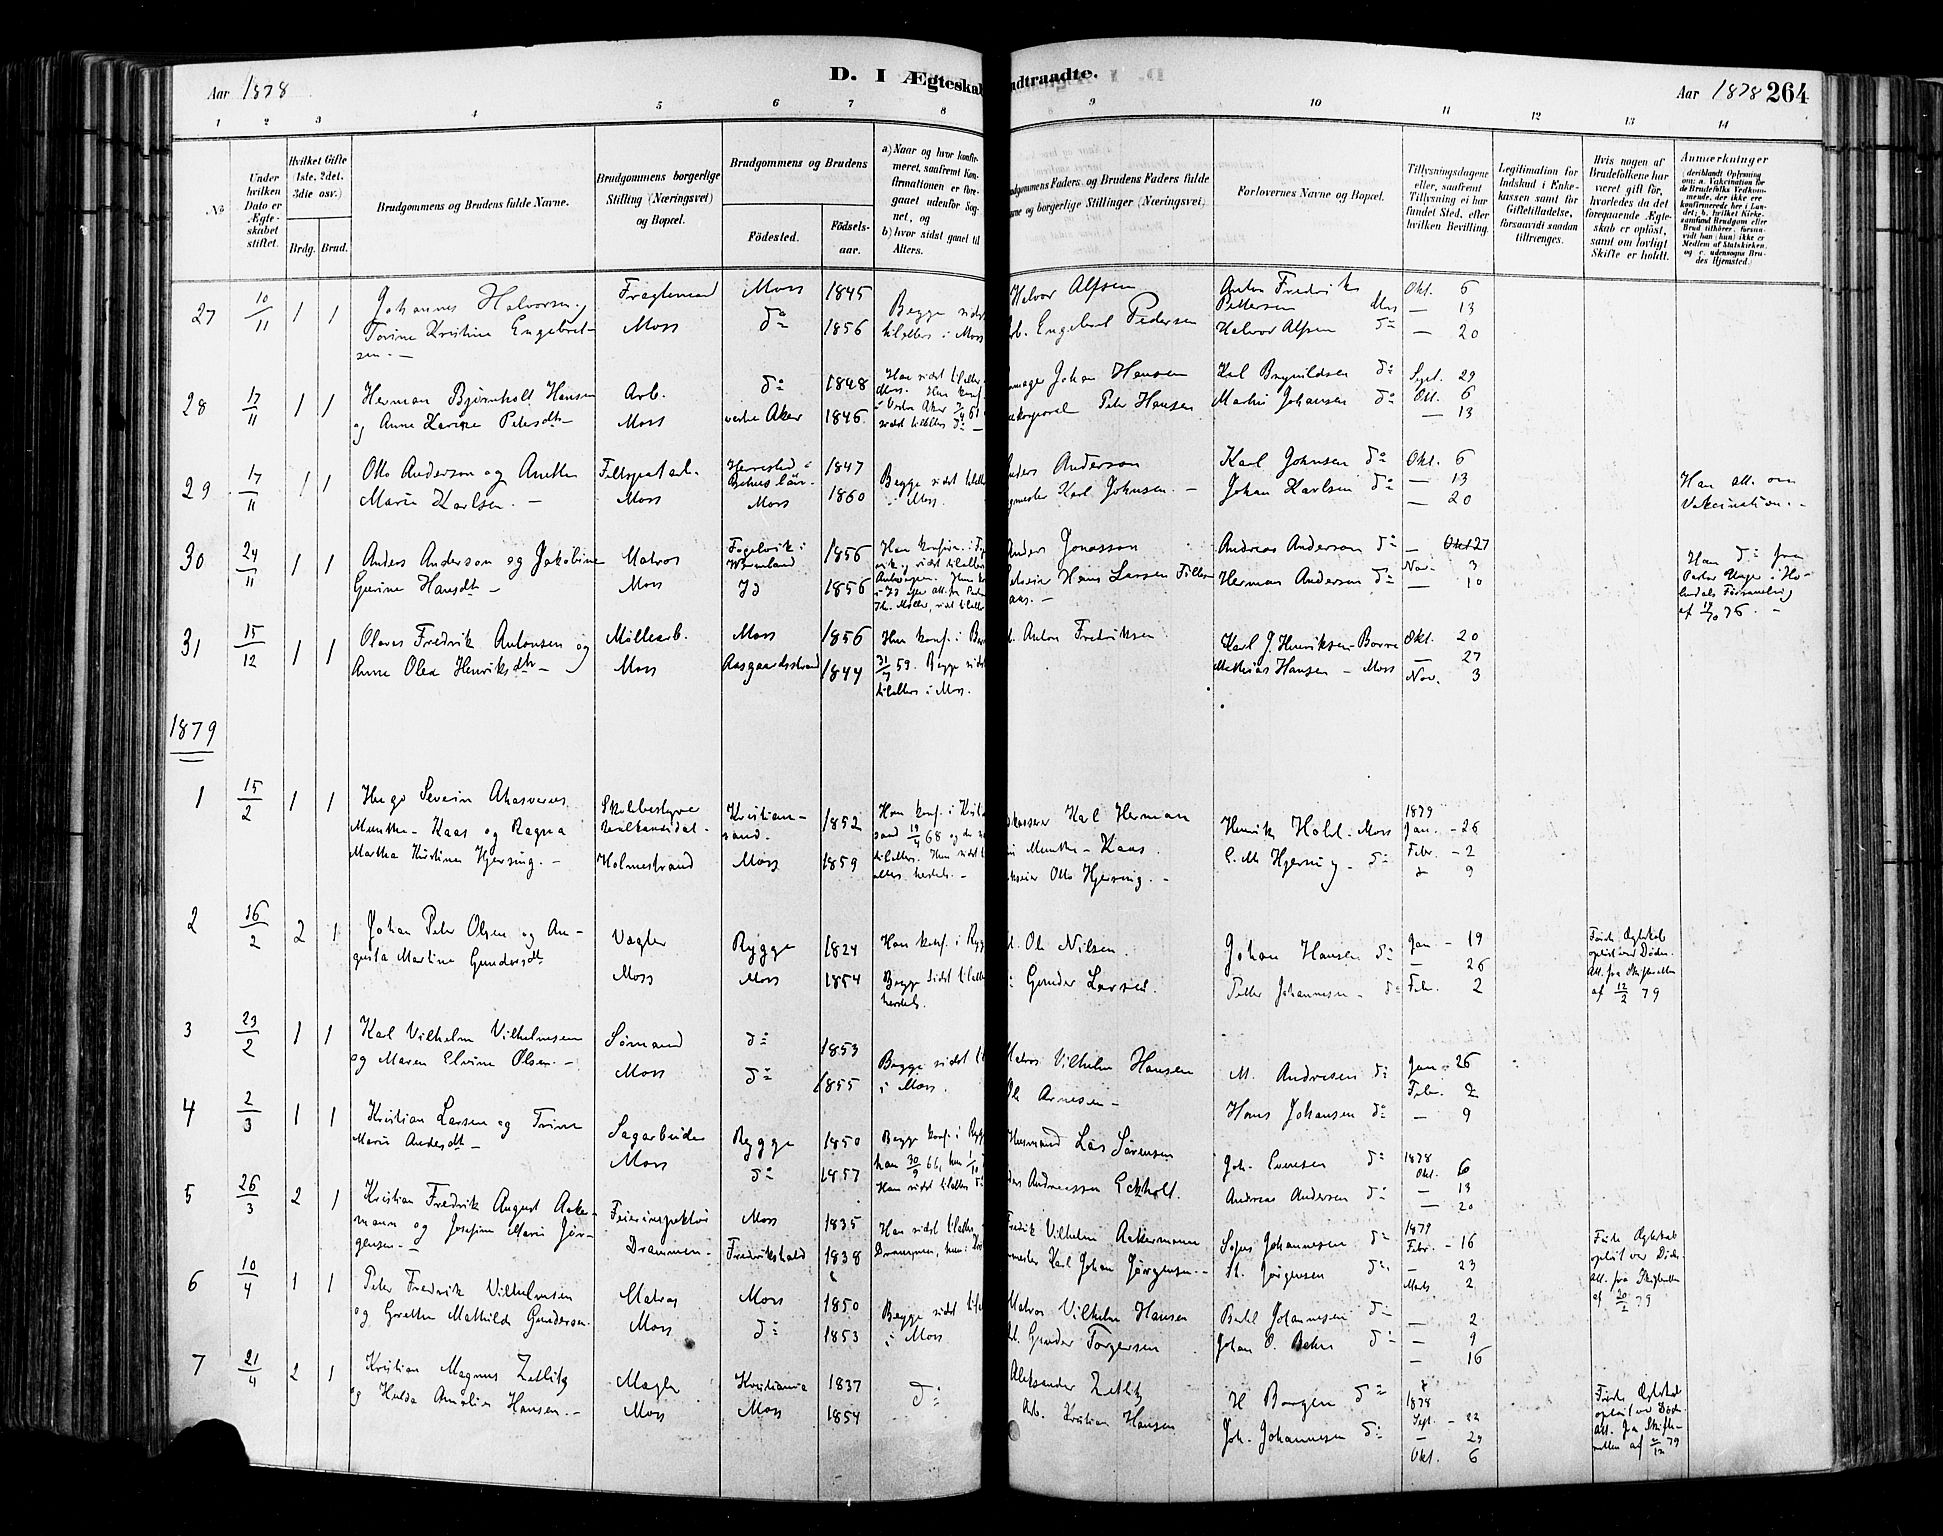 D. I Ægteskab
Aar 1878
1 2 3 4 5 6 7 8
No
Under hvilken Dato er Ægteskabet stiftet.
Hvilket Gifte (1ste, 2det, 3die osv.)
Brdg. Brud.
Brudgommens og Brudens fulde Navne.
Brudgommens borgerlige Stilling (Næringsvei) og Bopæl.
Brudgommens og Brudens
Fødested. Fødselsaar.
a) Naar og hvor konfirmeret, saafremt Konfirmationen er foregaaet udenfor Sognet, og
b) hvor sidst gaaet til Alters.
27 10/11 1 1 Johannes Halvorsen Fragtemand Moss 1845 Begge sidst
Torine Kristine Engebret- Moss do 1856 tilalters i Moss
sen. —
28 17/11 1 1 Herman Bjørnholt Hansen Arb. do 1848 Han sidst tilalters
og Anne Karine Petersdtr — Moss vestre Aker 1846
29 17/11 1 1 Otto Anderson og Anette 1847 Begge sidst
Marie Karlsen. — Moss Moss 1860 i Moss.
30 24/11 1 1 Anders Anderson og Jakobine Matros Fogelvik i Wermland 1856
Gurine Hansdtr — Moss Id 1856
31 15/12 1 1 Olaves Fredrik Antonsen og Møllearb. Moss 1856 Hun konf. i
Anne Olea Henriksdtr — Moss Aasgaardsstrand 1844 31/7 59. Begge sidst
tilalters i Moss.
1879
1 15/2 1 1 Hugo Severin Ahasverus Skolebestyrer Kristian- 1852 Han konf. i
Munthe-Kaas og Ragna Realkandidat. sand. sand 19/4 68
Martha Kristine Hjersing. — Holmestrand Moss 1859
2 16/2 2 1 Johan Peter Olsen og Au- Vægter Rygge 1824 Han konf. i
gusta Martine Gundersdtr Moss Moss 1854 Begge sidst
3 23/2 1 1 Karl Vilhelm Vilhelmsen Sømand do 1853 Begge sidst
og Maren Elvine Olsen. — Moss do 1855 i Moss.
4 2/3 1 1 Kristian Larsen og Trine Sagarbeider Rygge 1850 Begge konf. i
Marie Andersdtr — Moss do 1857 han 30/9 66, hun
5 26/3 2 1 Kristian Fredrik August Acker- Feierinspektør Moss 1835 Han sidst tilalters
mann og Josefine Marie Jør- Drammen. Fredrikshald 1838 Drammen, hun
gensen. —
6 10/4 1 1 Peter Fredrik Vilhelmsen Matros Moss 1850 Begge sidst
og Grethe Mathilde Gundersen. Moss do 1853 i Moss
7 21/4 2 1 Kristian Magnus Zetlitz Mægler Kristiania 1837 do
og Hulda Amalie Hansen. — Moss Moss 1854
indtraadte.
Aar 1878 264
8 9 10 11 12 13 14
Brudgommens Faders og Brudens Faders fulde Navne og borgerlige Stillinger (Næringsvei)
Forlovernes Navne og Bopæl.
Tillysningsdagene eller, saafremt Tillysning ei har fundet Sted, efter hvilken Bevilling.
Legitimation for Indskud i Enkekassen samt for Giftetilladelse, forsaavidt saadan tiltrænges.
Hvis nogen af Brudefolkene har været gift før, hvorledes da det foregaaende Ægteskab er opløst, samt om lovligt Skifte er holdt.
Anmærkninger
(deriblandt Oplysning om: a. Vakcination for de Brudefolks Vedkommende, der ikke ere konfirmerede her i Landet; b. hvilket Kirkesamfund Brudgom eller Brud tilhører, forsaavidt han (hun) ikke er Medlem af Statskirken, og c. udensogns Brudes Hjemsted.)
Halvor Alfsen Anton Fredrik Okt. 6
Pettersen Moss — 13
Engebret Pedersen Halvor Alfsen do — 20
Johan Hansen Karl Brynildsen do Sept. 29
Peter Hansen Martin Johansen do Okt. 6
— 13
Anderson Karl Johnsen do Okt. 6
Karl Johnsen. — Johan Karlsen do — 13
— 20
Han att. om
Vakcination. —
Anders Jonasson Andreas Anderson do — Okt 27
Hans Larsen Herman Anderson do Nov. 3
— 10
Han do fra
af 17/10 76. —
Anton Fredriksen Karl J. Henriksen — Borre Okt. 20
Mathias Hansen — Moss — 27
Nov. 3
Karl Herman 1879
Munthe-Kaas. Henrik Holst — Moss Jan. — 26
Otto Hjersing. — C. M. Hjersing — do Febr. — 2
9
Ole Nilsen. Johan Hansen do Jan — 19
— 26
Gunder Larsen. Petter Johannesen — do Febr. 2
Første Ægteskab
opløst ved Døden.
Att. fra Skifteretten
af 12/2 79
Matros Vilhelm Hansen M. Andresen do Jan — 26
Febr. 2
Ole Arnesen — Hans Johansen do — 9
Husmand Lars Sørensen 1878
Joh. Evensen do Okt. 6
Andreassen Eckholt. Andreas Andersen do — 13
— 20
Fredrik Vilhelm Ackermann 1879
Sofus Johannesen do Febr. — 16
Karl Johan Jørgensen. — St. Jørgensen do — 23
Marts 2
Første Ægteskab
opløst ved Døden
Att. fra Skifteretten
af 20/2 79
Matros Vilhelm Hansen Johannesen do — 2
Gunder Torgersen Johan O. do — 9
— 16
Aleksander Zetlitz H Borgen do 1878
Sept. — 22
Arb. Kristian Hansen Joh. Johannesen do — 29
Okt. 6
Første Ægteskab
opløst ved Døden
Att. fra Skifte-
retten af 79